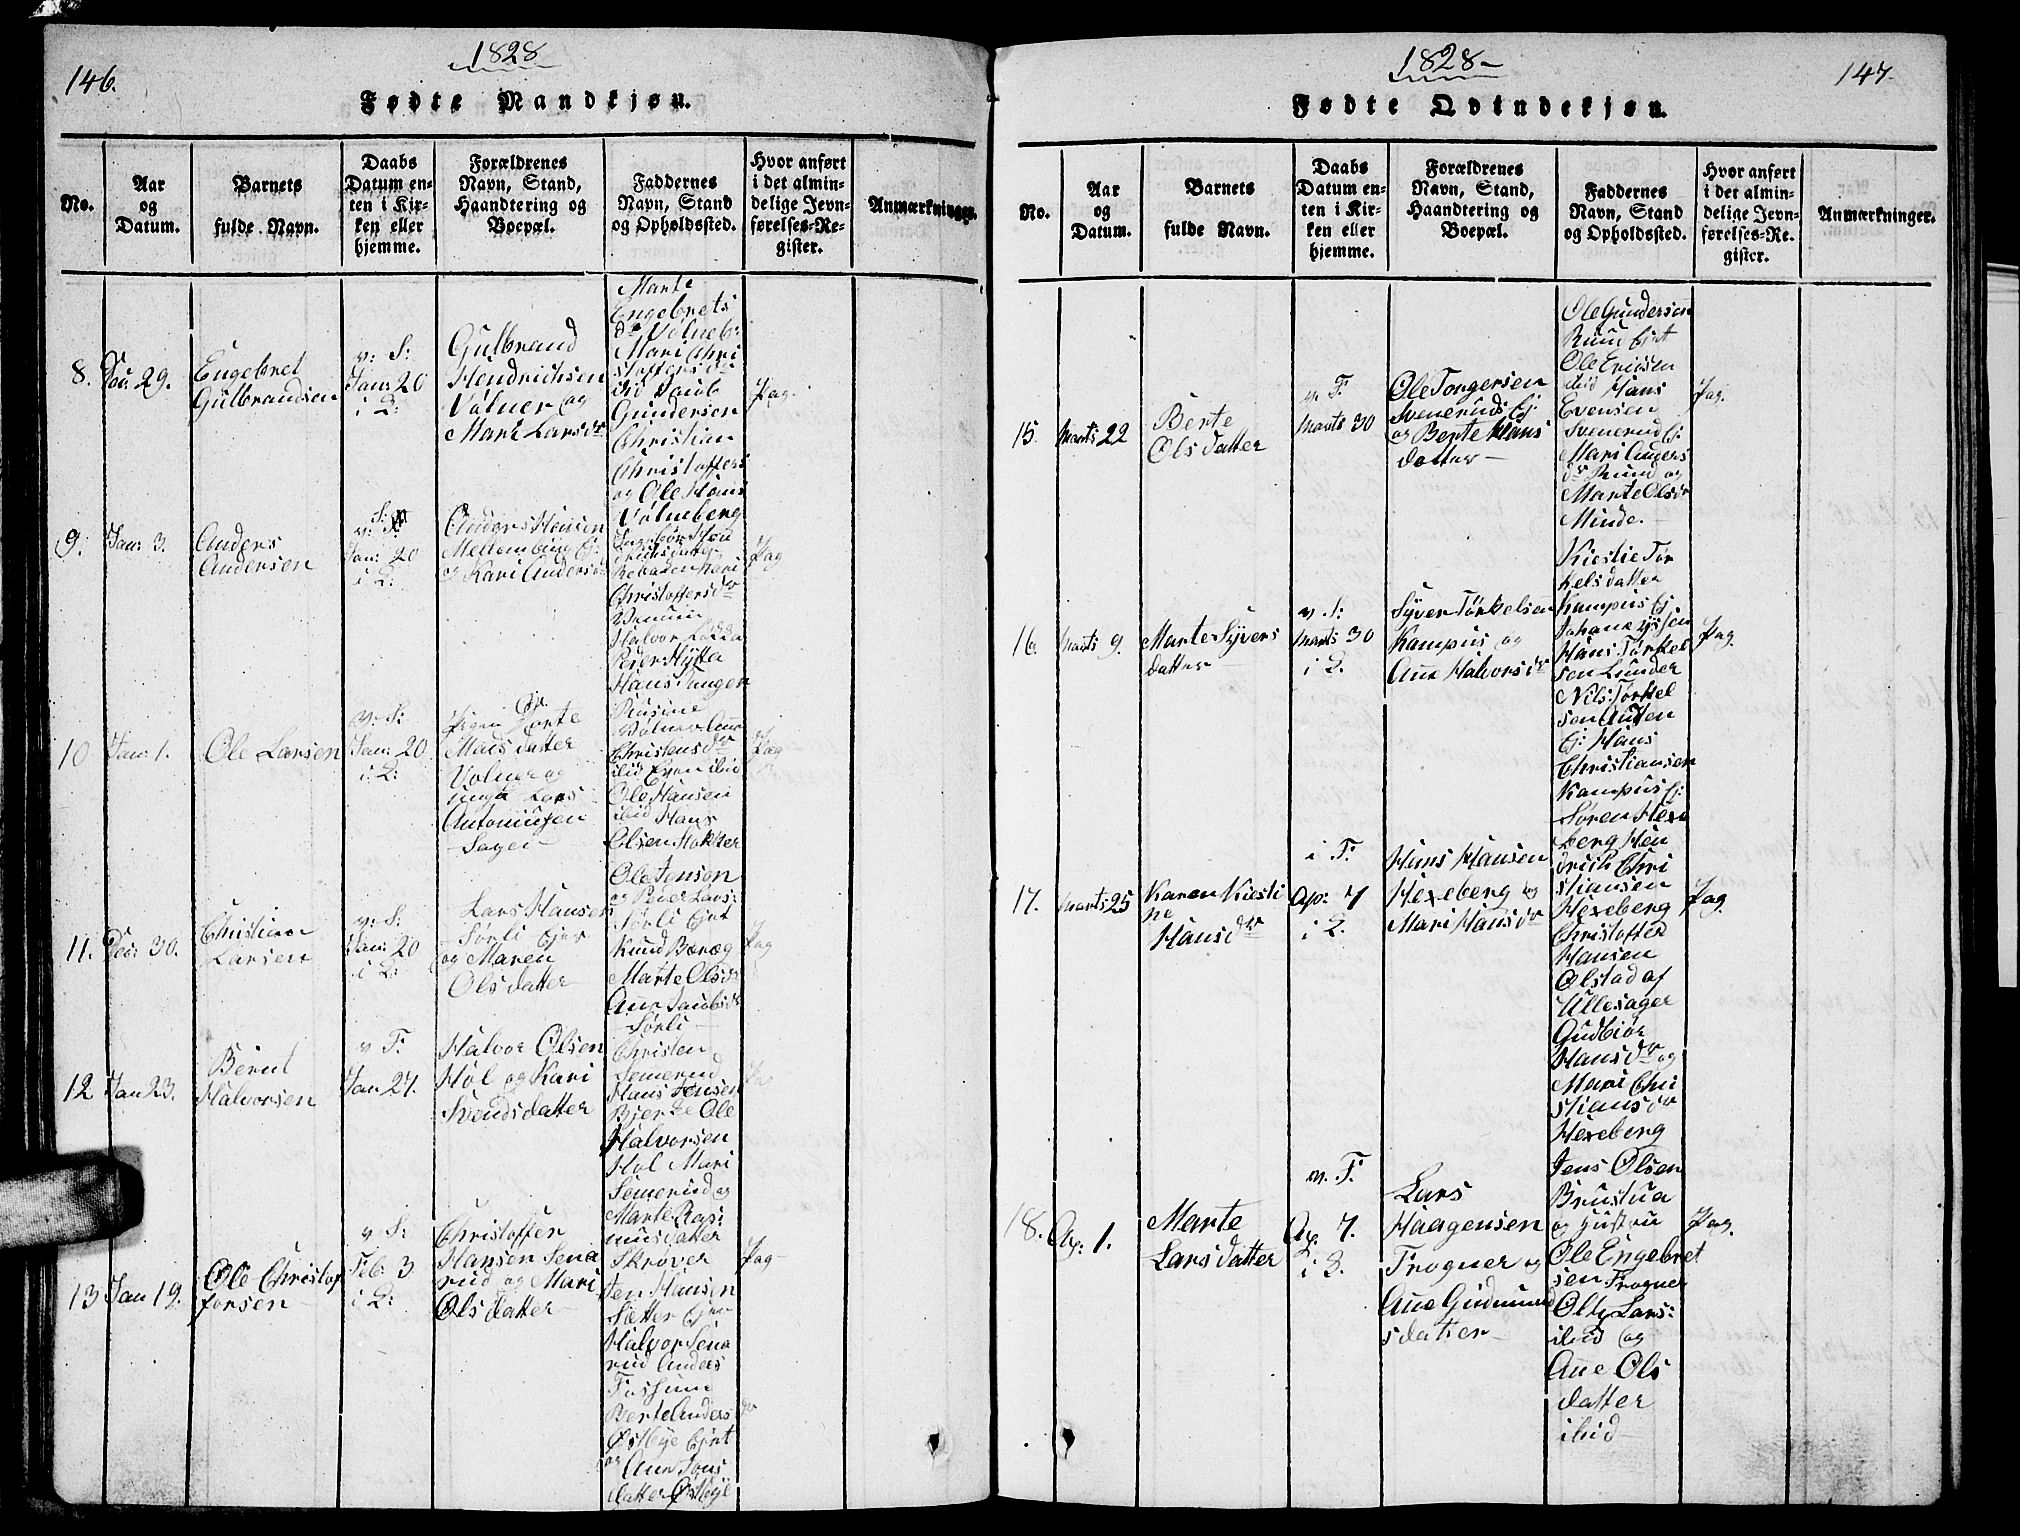 146.
1828
Fødte Mandkjøn.
No.
Aar
og
Datum.
Barnets
fulde Navn.
Daabs
Datum en-
ten i Kir-
ken eller
hjemme.
Forældrenes
Navn, Stand,
Haandtering og
Boepæl.
Faddernes
Navn, Stand
og Opholdssted.
Hvor anført
i det almin-
delige Jevn-
førelses-Re-
gister.
Anmærkninger.
8.
29.
Engebret
Gulbrandsen
v: S:
Jan: 20
i L:
Gulbrand
Hendrichsen
Volner og
Marte Larsdr
Marte
Engebrets
dr Volneb:
Mari Chri
stoffersdr
ibid Jacob
Gundersen
Christian
Christoffers
og Ole Hans
Volneberg
Pag.
9.
Jan: 3.
Anders
Andersen
v: S:
Jan: 20
i L:
Anders Hansen
og Kari Andersdr
Christoffersdr
Halvor
Peder Hytta
Hans Tangen
Pag
10
Jan: 1.
Ole Larsen
v: S:
Jan: 20
i L:
Pigen Dorte
Mads datter
Volner og
unge Lars
Antonisen
Sager
Volner Ane
Christensdr
ibid Even ibid
Ole Hansen
ibid Hans
Olsen Holter
Pag
11.
Dec: 30.
Christian
Larsen
v: S:
Jan: 20
i L:
Lars Hansen
Sørli Ejer
og Maren
Olsdatter
Ole Jensen
og Peder Lars:
Sørli Ejet
Knud
Marte Olsdr
Ane Jacobsdr
Sørli
Pag
12
Jan 23.
Bernt
Halvorsen
v F:
Jan 27.
Halvor Olsen
Hol og Kari
Svendsdatter
Christen
Semerud
Hans Jensen
Bjerke Ole
Halvorsen
Hol Mari
Semerud og
Marte Ras:
musdatter
Skrøver
13
Jan 19.
Ole Christof
fersen
v S:
Feb: 3
i L:
Christoffer
Hansen Sena
rud og Mari
Olsdatter
Jen Hansen
Sætter Ejer
Halvor Sena
rud Anders
Fossum
Berte Anders dr
Østbye Ejet
og Ane Jens
datter Østbye
Pag
1828
147.
Fødte Qvindekjøn.
No.
Aar
og
Datum.
Barnets
fulde Navn.
Daabs
Datum en-
ten i Kir-
ken eller
hjemme.
Forældrenes
Navn, Stand,
Haandtering og
Boepæl.
Faddernes
Navn, Stand
og Opholdssted.
Hvor anført
i det almin-
delige Jevn-
førelses-Re-
gister.
Anmærkninger.
15.
Marts 22
Berte
Olsdatter
v. F:
Marts 30
Ole Torgersen
Svenerud Ej:
og Berte Hans
datter
Ole Gundersen
Ruud Ejet
Ole Ericsen
ibid Hans
Evensen
Svenerud Ej:
Mari Anders
dr Ruud og
Marte Olsdr
Minde.
Pag.
16.
Marts 9.
Marte Syvers
datter
v. S:
Marts 30
i L.
Syver Torkelsen
Kampus og
Ane Halvorsdr
Kiestie Tor
kelsdatter
Kampus Ej
Hans Torkel
sen Lunder
Nils Torkel
sen Austen
Ej: Hans
Christiansen
Kampus Ej:
Pag.
17.
Marts 25
Karen Kiesti
ne
Hansdr
i F:
Ap: 7
i L.
Hans Hansen
Hexeberg og
Mari Hansdr
Søren Hexe
berg Hen
drich Chri
stiansen
Hexeberg
Christoffer
Hansen
Olstad af
Ullesager
Gudbiør
Hansdr og
Mari Chri
stiansdr
Hexeberg
Pag.
18.
Ap: 1.
Marte
Larsdatter
v. F:
Ap. 7.
Lars
Haagensen
Frogner og
Ane Gudmund
sdatter
Jens Olsen
Brustua
og Hustru
Ole Engebret
sen Frogner
Ole Lars:
ibid og
Ane Ols
datter
ibid
Pag.